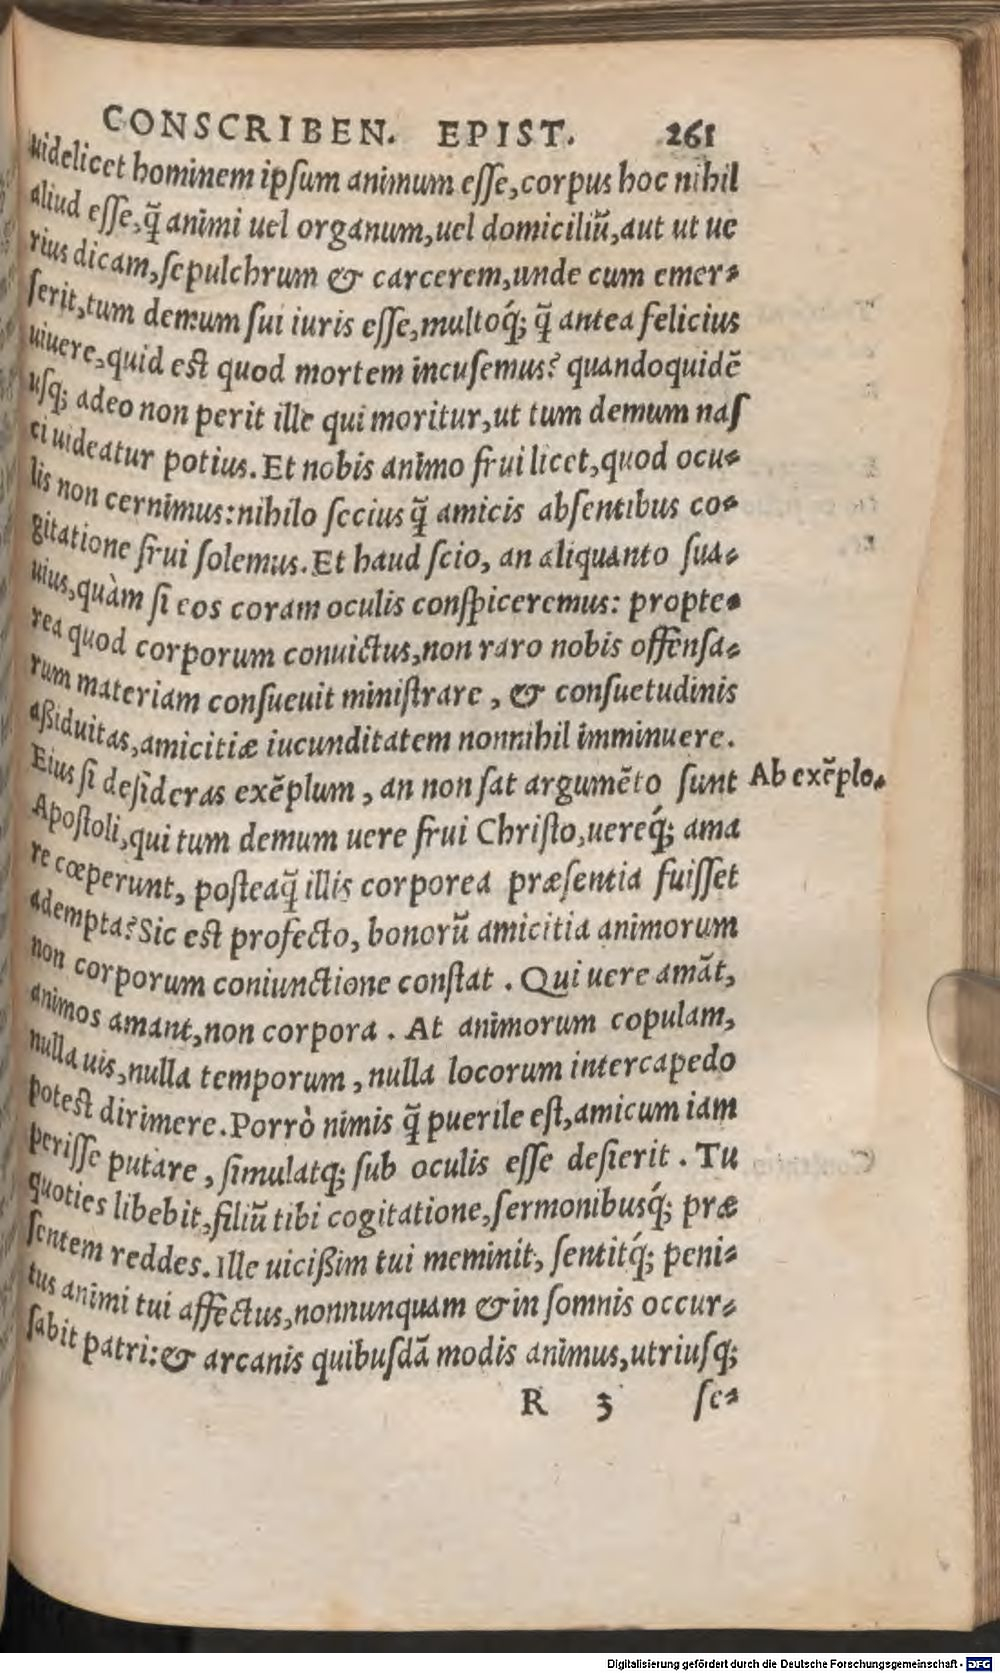 CONSCRIBEN. EPIST. 261
uidelicet hominem ipſum animum eſſe, corpus hoc nihil
aliud eſſe, q̃ animi uel organum, uel domiciliũ, aut ut ue
rius dicam, ſepulchrum & carcerem, unde cum emer⸗
ſerit, tum demum ſui iuris eſſe, multoq́; q̃ antea felicius
uiuere, quid est quod mortem incuſemus? quandoquidẽ
uſq; adeo non perit ille qui moritur, ut tum demum naſ
ci uideatur potius. Et nobis animo frui licet, quod ocu⸗
lis non cernimus: nihilo ſecius q̃ amicis abſentibus co⸗
gitatione frui ſolemus. Et haud ſcio, an aliquanto ſua⸗
uius, quàm ſi eos coram oculis conſpiceremus: propte⸗
rea quod corporum conuictus, non raro nobis offenſa⸗
rum materiam conſueuit miniſtrare, & conſuetudinis
aßiduitas, amicitiæ iucunditatem nonnihil imminuere.
Eius ſi deſideras exẽplum, an non ſat argumẽto ſunt
Ab exẽplo.
Apoſtoli, qui tum demum uere frui Chriſto, uereq́; ama
re cœperunt, poſteaq̃ illis corporea præſentia fuiſſet
adempta? Sic est profecto, bonorũ amicitia animorum
non corporum coniunctione conſtat. Qui uere amãt,
animos amant, non corpora. At animorum copulam,
nulla uis, nulla temporum, nulla locorum intercapedo
potest dirimere. Porrò nimis q̃ puerile eſt, amicum iam
perijſſe putare, ſimulatq; ſub oculis eſſe deſierit. Tu
quoties libebit, filiũ tibi cogitatione, ſermonibusq́; præ
ſentem reddes. Ille uicißim tui meminit, ſentitq́; peni⸗
tus animi tui affectus, nonnunquam & in ſomnis occur⸗
ſabit patri: & arcanis quibuſdã modis animus, utriuſq;
R 3 ſe⸗
Digitalisierung gefördert durch die Deutsche Forschungsgemeinschaft - DFG